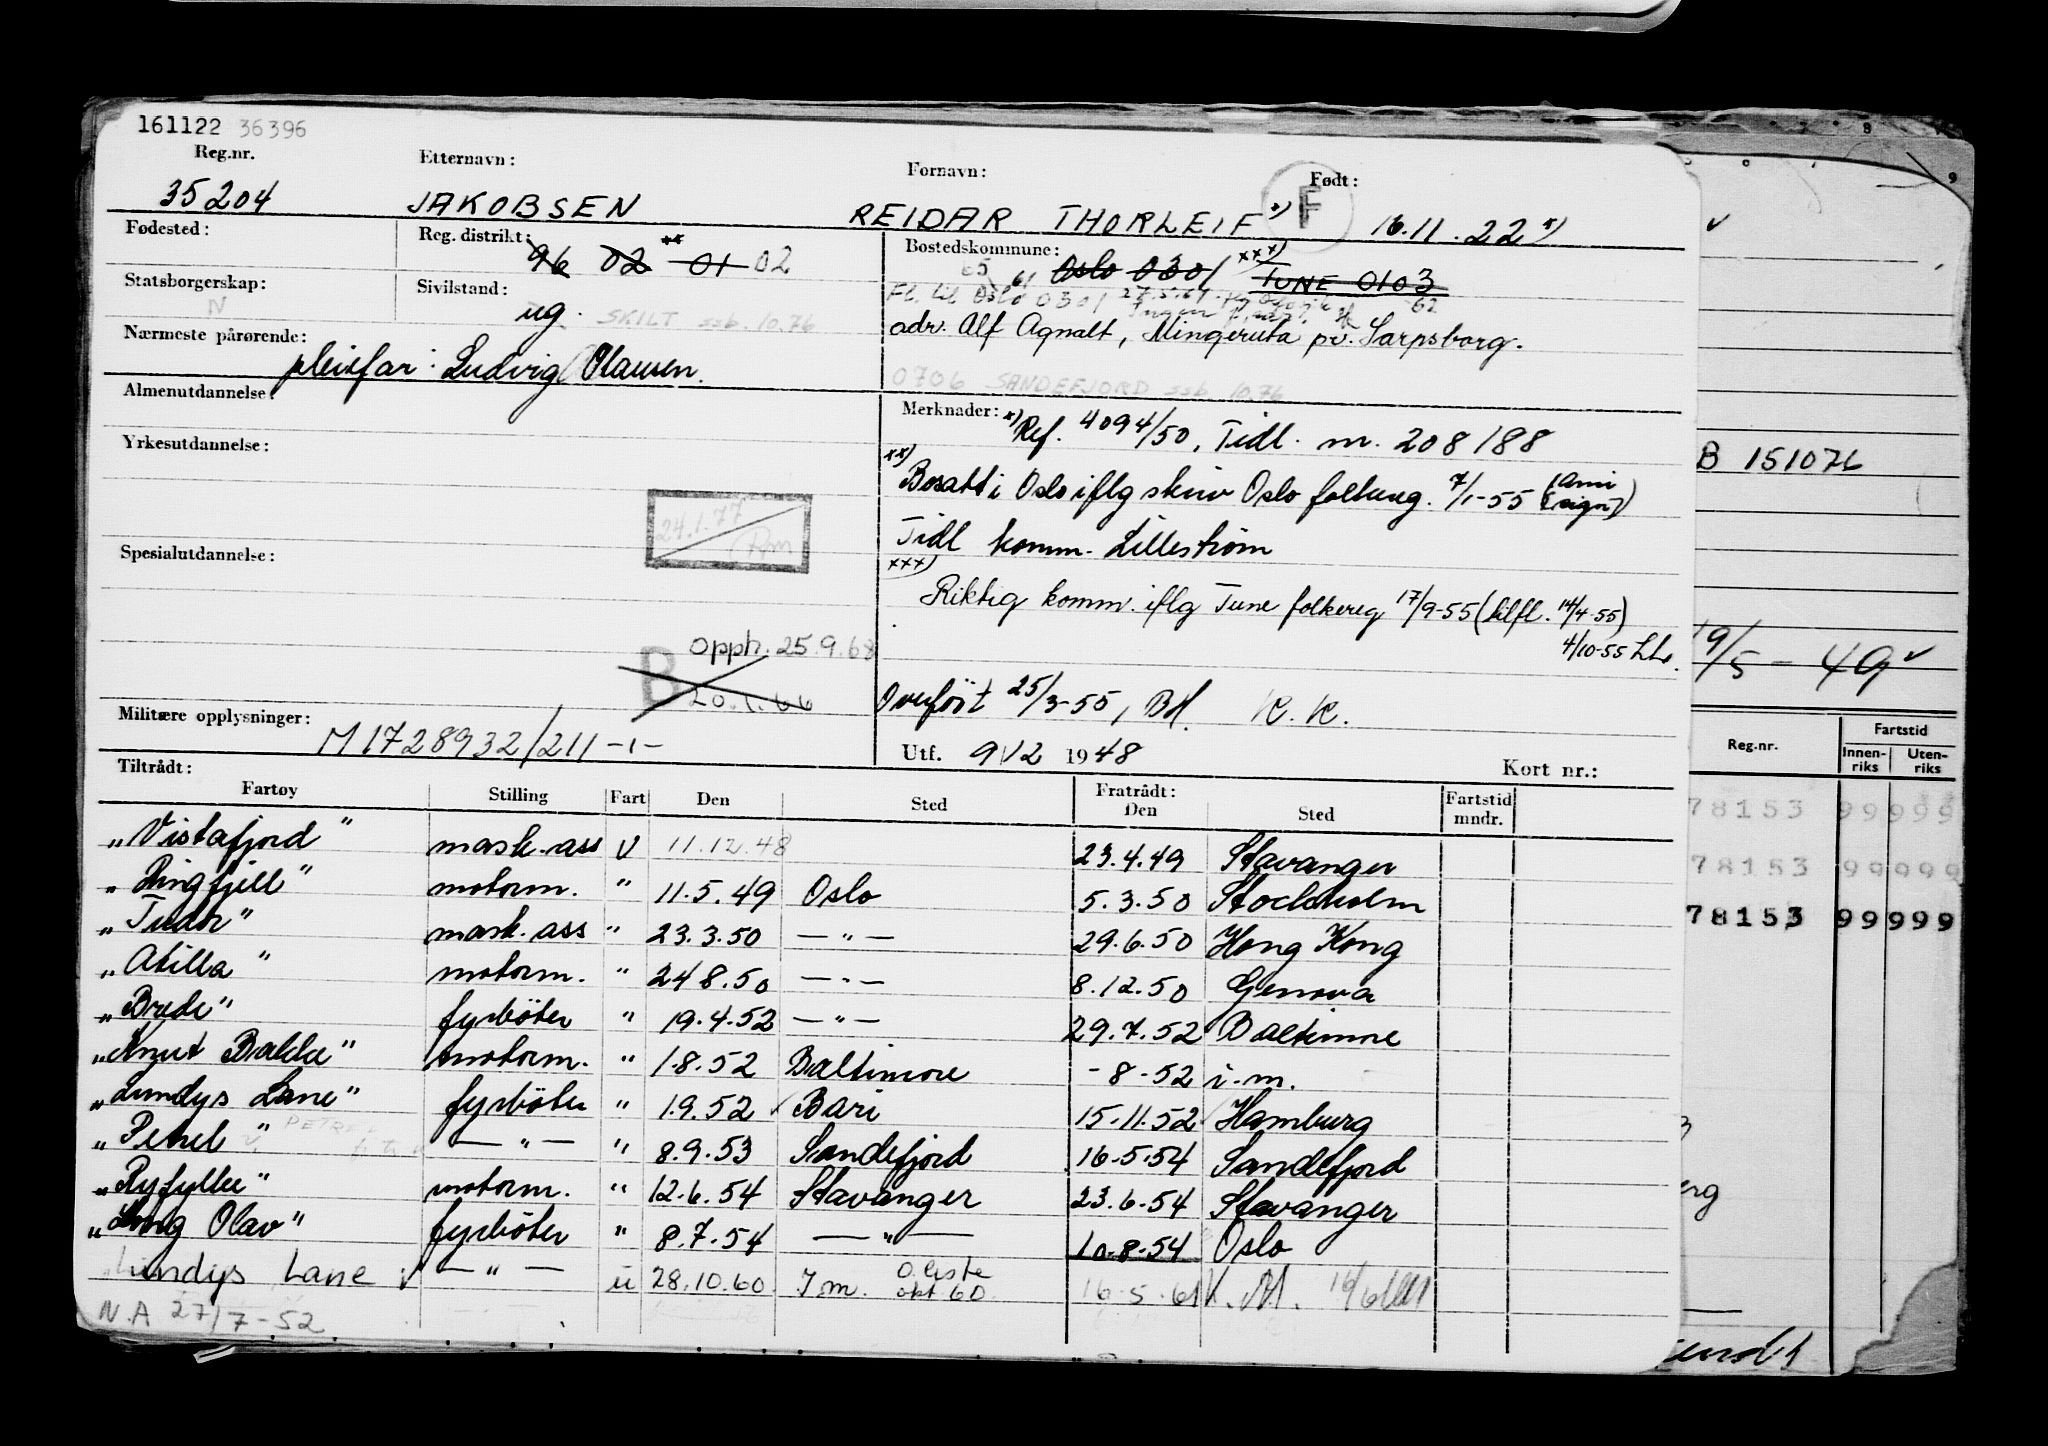 161122 36396
Reg.nr. Etternavn: Fornavn: Født:
35204 JAKOBSEN REIDAR THORLEIF x) F 16.11.22 x)
Fødested: Reg. distrikt: 96 02 xx 01 02 Bostedskommune: Oslo 0301 xxx) TUNE 0103
65 61
Statsborgerskap: N Sivilstand: ug. SKILT ssb. 10.76
Fl. til Oslo 0301 27.5.61 62
adr. Alf Agnalt, Mingeruta pr. Sarpsborg.
Nærmeste pårørende: pleiefar: Ludvig Olausen.
0706 SANDEFJORD ssb. 10.76
Almenutdannelse:
Merknader: x) Ref. 4094/50, Tidl. m. 208188
Yrkesutdannelse:
xx) Bosatt i Oslo iflg skriv Oslo folkereg. 7/1-55 (Ami sign)
24.1.77
Tidl komm. Lillestrøm
Spesialutdannelse:
xxx) Riktig komm. iflg Tune folkereg 17/9-55 (tilfl. 14/4-55)
4/10-55
B opph. 25.9.68
20.1.66
Overført 25/3-55, K.K.
Militære opplysninger: M 1728932/211-1-
Utf. 9/12 1948 Kort nr.:
Tiltrådt: Fratrådt:
Fartøy Stilling Fart Den Sted Den Sted Fartstid mndr.
"Vistafjord" mask.ass V 11.12.48 23.4.49 Stavanger
"Ringfjell" motorm. " 11.5.49 Oslo 5.3.50 Stockholm
"Tudor" mask.ass " 23.3.50 — " — 29.6.50 Hong Kong
"Atilla" motorm. " 24 8.50 — " — 8.12.50 Genova
"Brede" fyrbøter " 19.4.52 — " — 29.7.52 Baltimore
"Knut Bakke" motorm. " 1.8.52 Baltimore - 8 - 52 i.m.
"Lundys Lane" fyrbøter " 1.9.52 Bari 15.11.52 Hamburg
"Petrel" PETREL — " — " 8.9.53 Sandefjord 16.5.54 Sandefjord
"Ryfylke" motorm. " 12.6.54 Stavanger 23.6.54 Stavanger
"Kong Olav" fyrbøter " 8.7.54 — " — 10.8.54 Oslo
Lundys Lane v — " — u 28.10.60 I m. O.liste okt 60 16.5.61
N.A 27/7-52
B 151076
19/5 - 49
Reg.nr. Fartstid
Innenriks Utenriks
78153 99999
78153 99999
78153 99999